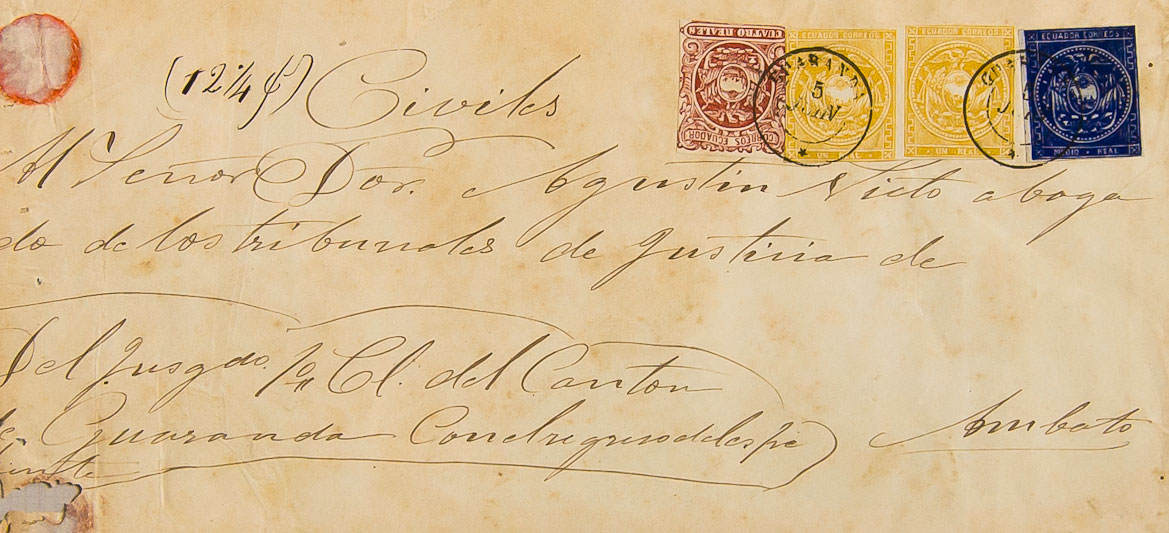 CUATRO REALES
CORREOS ECUADOR
ECUADOR CORREOS
UN REAL
ECUADOR CORREOS
UN REAL
ECUADOR CORREOS
MEDIO REAL
GUARANDA
5
JUN
(12¼ ₰) Civiles
Al Señor Dor. Agustin Nieto aboga
do de los tribunales de Justicia de
Del Jusgdo. 1o Cl. del Canton
de Guaranda Con el regreso del espe
diente
Ambato